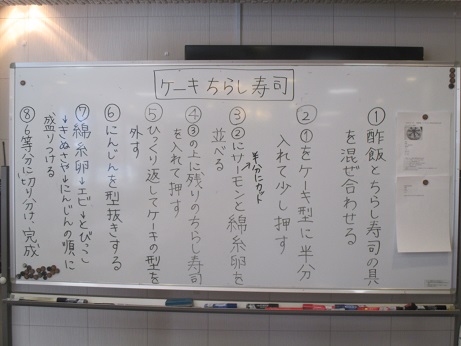 ケーキちらし寿司
①酢飯とちらし寿司の具
を混ぜ合わせる
②①をケーキ型に半分
入れて少し押す
半分にカット
③②にサーモンと綿糸卵を
並べる
④③の上に残りのちらし寿司
を入れて押す
⑤ひっくり返してケーキの型を
外す
⑥にんじんを型抜きする
⑦綿糸卵→エビ→とびっこ
→きぬさや→にんじんの順に
盛りつける
⑧6等分に切り分け、完成